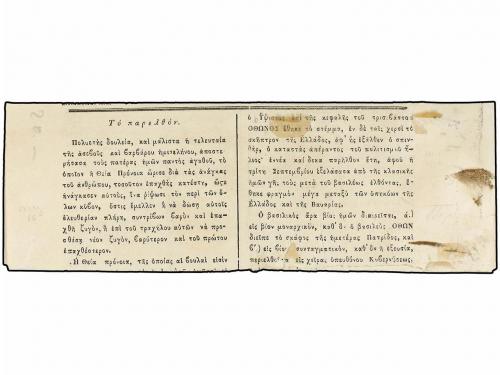 Τὸ παρελθόν.
Πολυετὴς δουλεία, καὶ μάλιστα ἡ τελευταία
τῆς ἀσεβοῦς καὶ βαρβάρου ἡμισελήνου, ἀποστε
ρήσασα τοὺς πατέρας ἡμῶν παντὸς ἀγαθοῦ, τὸ
ὁποῖον ἡ Θεία Πρόνοια ὥρισε διὰ τὰς ἀνάγκας
τοῦ ἀνθρώπου, τοσοῦτον ἐπαχθὴς κατέστη, ὥςε
ἠνάγκασεν αὐτοὺς, ἵνα ῥίψωσι τὸν περὶ τῶν ὅ-
λων κύβον, ὅστις ἔμελλεν ἢ νὰ δώσῃ αὐτοῖς
ἐλευθερίαν πλήρη, συντρίβων βαρὺν καὶ ἐπα-
χθῆ ζυγὸν, ἢ ἐπὶ τοῦ τραχήλου αὐτῶν νὰ προ-
σθέσῃ νέον ζυγὸν, βαρύτερον καὶ τοῦ πρώτου
ἐπαχθέστερον.
Ἡ θεία πρόνοια, τῆς ὁποίας αἱ βουλαὶ εἰσὶν
ὁ Ὕψιστος ἐπὶ τῆς κεφαλῆς τοῦ τρισ
ΟΘΩΝΟΣ ἔθηκε τὸ στέμμα, ἐν δὲ ταῖς χερσὶ τὸ
σκῆπτρον τῆς Ἑλλάδος, ἀφ' ἧς ἐξῆλθεν ὁ σπιν-
θὴρ, ὁ καταστὰς ἀπέραντος τοῦ πολιτισμοῦ
ἐννέα καὶ δεκα παρῆλθον ἔτη, ἀφοῦ ἡ
τρίτη Σεπτεμβρίου ἐξελάσασα ἀπὸ τῆς κλασικῆς
ἡμῶν γῆς τοὺς μετὰ τοῦ βασιλέως ἐλθόντας, ἔ-
θηκε φραγμὸν μέγα μεταξὺ τῶν ὑπηκόων τῆς
Ἑλλάδος καὶ τῆς Βαυαρίας.
Ὁ βασιλικὸς ἄρα βίος ἡμῶν διαιρεῖται, ά.)
εἰς βίον μοναρχικὸν, καθ' ὃν ὁ βασιλεὺς ΟΘΩΝ
διεῖπε τὸ σκάφος τῆς ἡμετέρας Πατρίδος, καὶ
β'.) εἰς βίον συνταγματικὸν, καθ' ὃν ἡ ἐξουσία,
εἰς χεῖρας ὑπευθύνου Κυβερνήσεως,